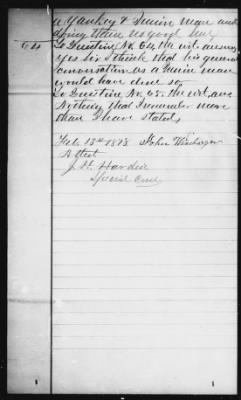 a Yankey & Union man and
doing them no good
64 To Question No. 64, the wit. answers
yes sir I think that his general
conversation as a Union man
would have done so,
To Question No. 65. the wit. ans
Nothing that I remember more
than I have stated,
Feb. 13th 1878 John
Attest
J. H. Hardin
Special Com